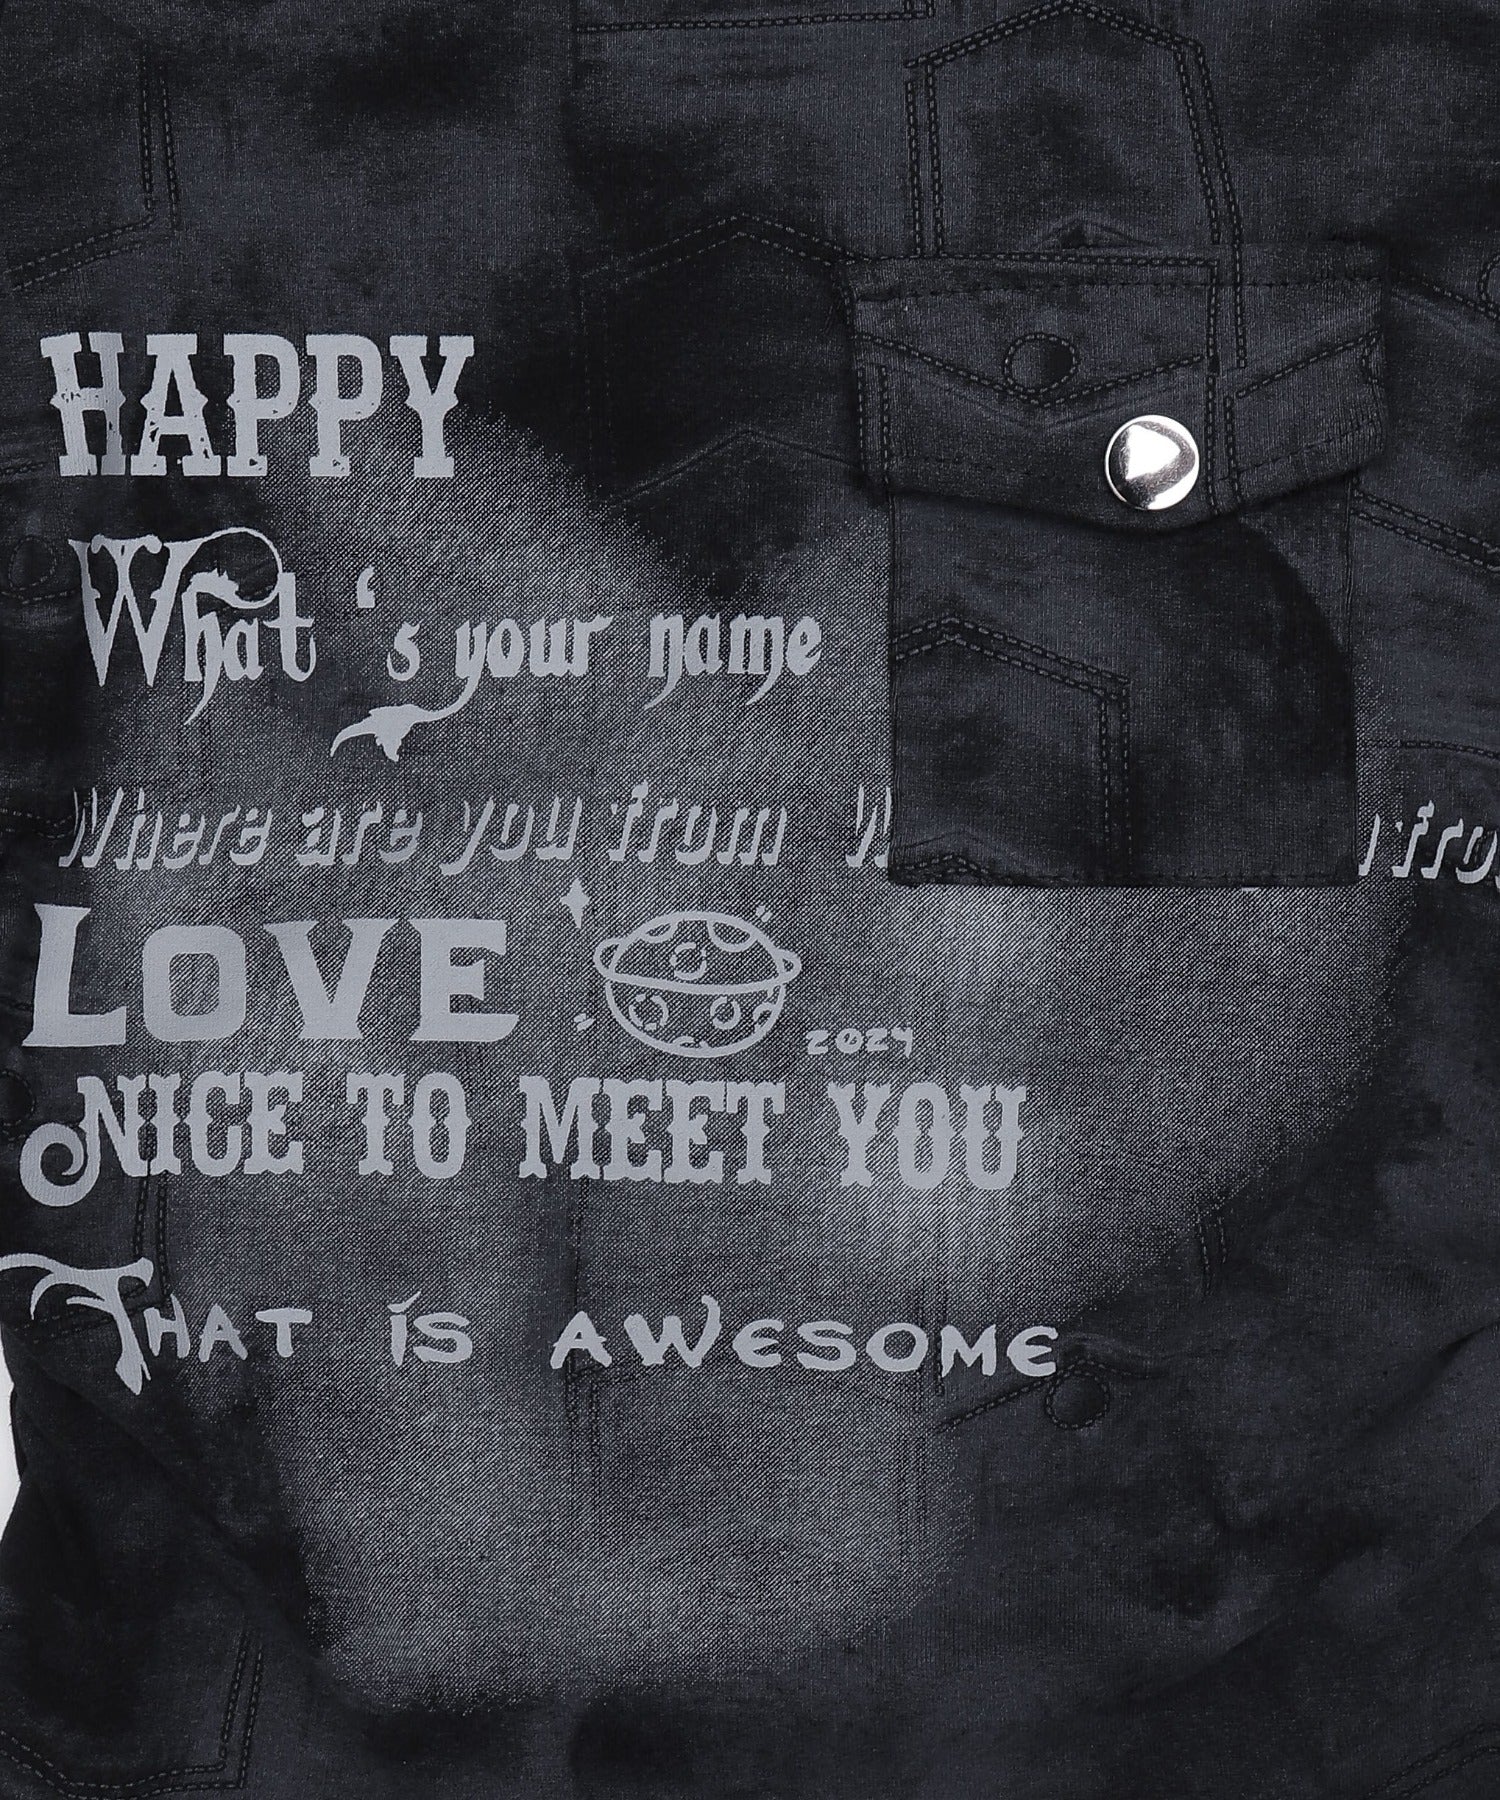 HAPPY
What 's your name
Where are you from W
LOVE
2024
NICE TO MEET YOU
THAT iS AWESOME